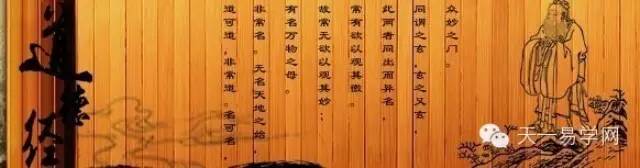 道德经
道可道，非常道。名可名，
非常名。无名天地之始，
有名万物之母。
故常无欲以观其妙；
常有欲以观其徼。
此两者同出而异名，
同谓之玄，玄之又玄，
众妙之门。
天一易学网